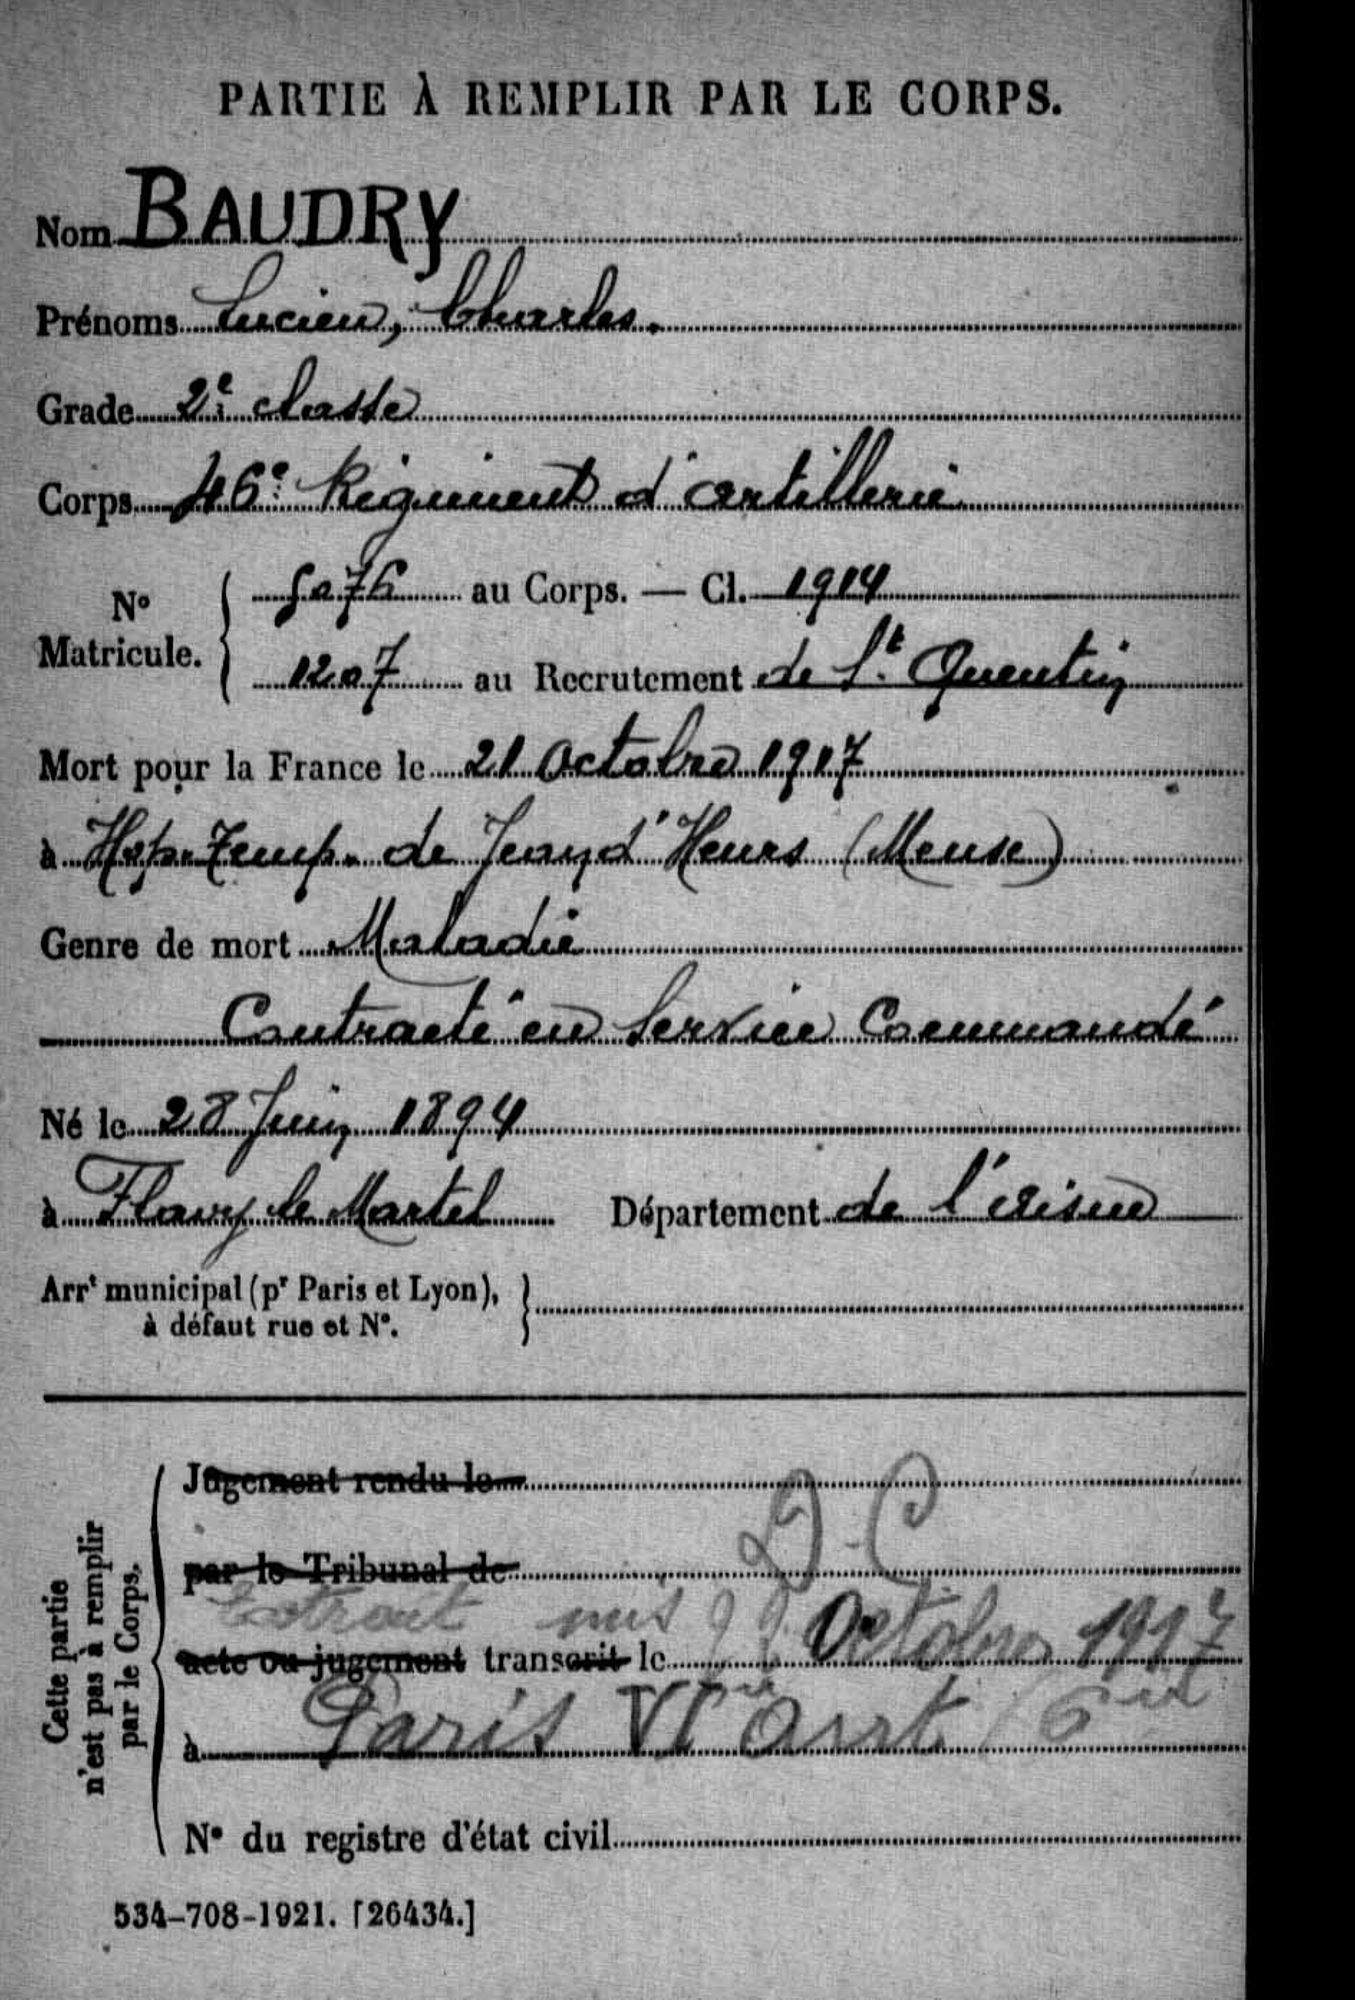 PARTIE À REMPLIR PAR LE CORPS.
Nom BAUDRY
Prénoms Lucien, Charles.
Grade 2e classe
Corps 46e Régiment d'artillerie
No Matricule. 5076 au Corps. — Cl. 1914
1207 au Recrutement de St. Quentin
Mort pour la France le 21 Octobre 1917
à Hop. Temp. de Jeand'Heurs (Meuse)
Genre de mort Maladie
Contracté en Service Commandé
Né le 28 Juin 1894
à Flavy le Martel Département de l'Aisne
Arrt municipal (pr Paris et Lyon),
à défaut rue et No.
Cette partie
n'est pas à remplir
par le Corps.
Jugement rendu le
D.C
par le Tribunal de
Extrait mis Octobre 1917
acte ou jugement transcrit le
à Paris VIe arrt
No du registre d'état civil
534-708-1921. [26434.]